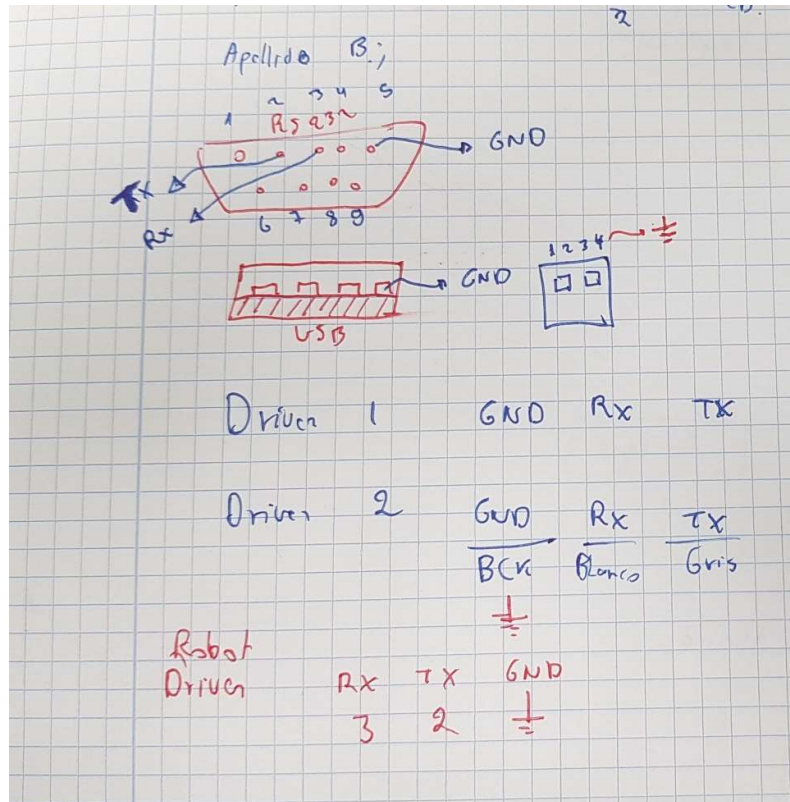 2
Apellido B.;
1 2 3 4 5
RS 232
GND
TX
Rx
6 7 8 9
1 2 3 4
GND
USB
Driver 1 GND Rx TX
Driver 2 GND RX TX
BCK Blanco Gris
Robot
Driver RX TX GND
3 2